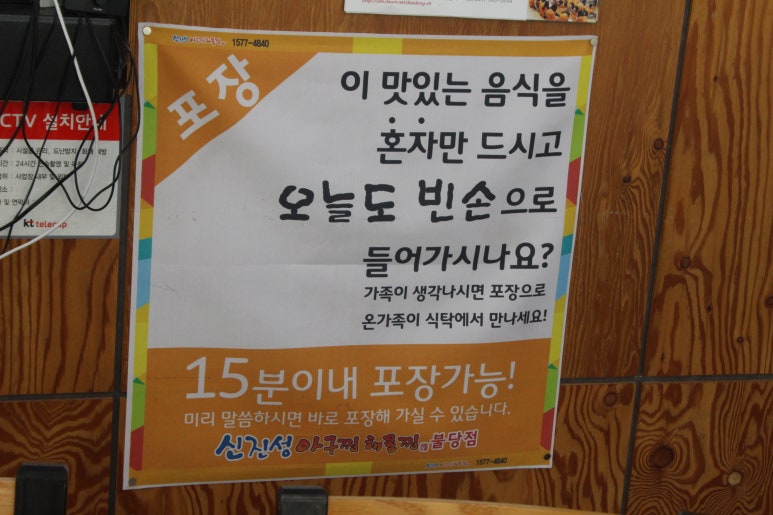 1577-4840
포장
이 맛있는 음식을
혼자만 드시고
오늘도 빈손으로
들어가시나요?
가족이 생각나시면 포장으로
온가족이 식탁에서 만나세요!
15분이내 포장가능!
미리 말씀하시면 바로 포장해 가실 수 있습니다.
신진성 아구찜 해물찜 불당점
1577-4840
CTV 설치안내
24시간
kt telecop